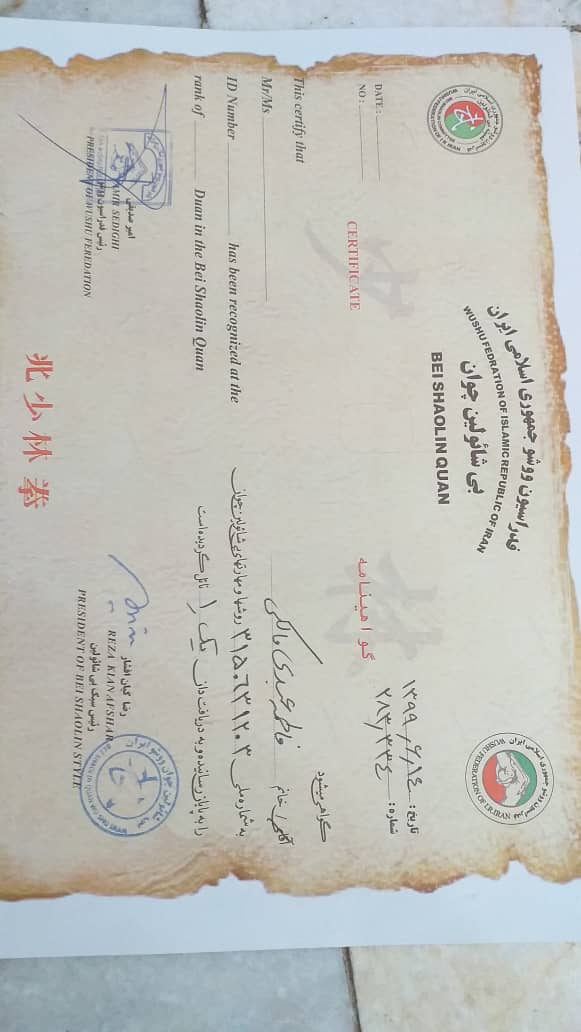 فدراسیون ووشو جمهوری اسلامی ایران
WUSHU FEDRATION OF ISLAMIC REPUBLIC OF IRAN
بی شائولین چوان
BEI SHAOLIN QUAN
DATE :
NO :
CERTIFICATE
This certify that
Mr/Ms
ID Number has been recognized at the
rank of Duan in the Bei Shaolin Quan
تاریخ : ۱۳۹۹,۶,۱۴
شماره : ۲۸۳,۳۳۴
گواهینامه
گواهی میشود
آقای / خانم فاطمه عبدی مالکی
به شماره ملی ۳۱۵۰۶۳۱۲۰۳ روشها و مهارتهای بی شائولین چوان
را به پایان رسانیده و به دریافت دان یک (۱) نائل گردیده است
امیر صدیقی
رئیس فدراسیون ووشو
AMIR SEDIGHI
PRESIDENT OF WUSHU FEREDATION
رضا کیان افشار
REZA KIANAFSHAR
رئیس سبک بی شائولین
PRESIDENT OF BEI SHAOLIN STYLE
北少林拳
جمهوری اسلامی ایران
WUSHU FEDERATION OF I.R.IRAN